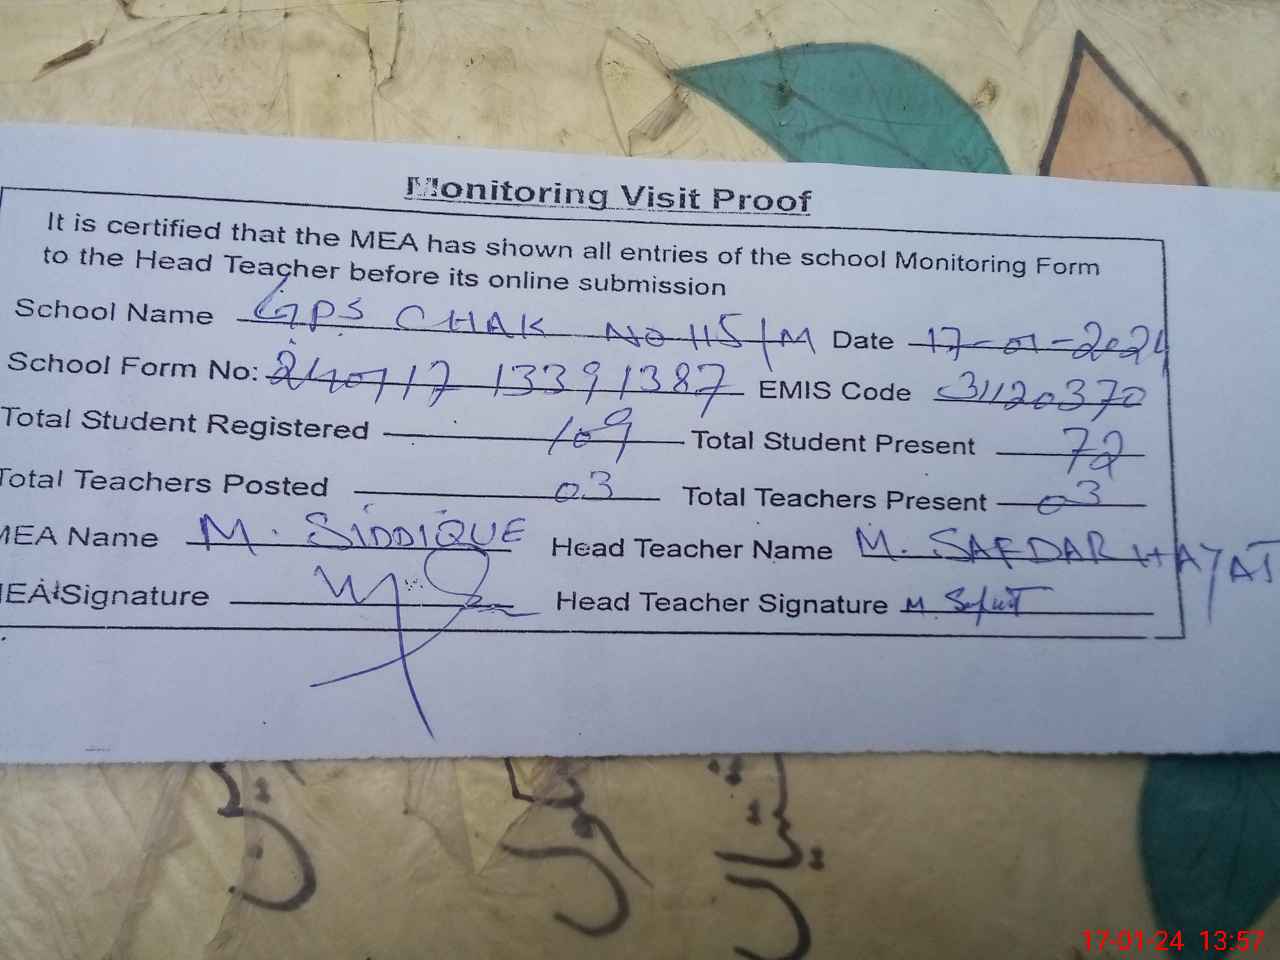 Monitoring Visit Proof
It is certified that the MEA has shown all entries of the school Monitoring Form
to the Head Teacher before its online submission
School Name GPS CHAK NO 115/M Date 17-01-2024
School Form No: 240117 13391387 EMIS Code 31120370
Total Student Registered 109 Total Student Present 72
Total Teachers Posted 03 Total Teachers Present 03
MEA Name M. SIDDIQUE Head Teacher Name M. SAFDAR HAYAT
MEA Signature Head Teacher Signature
17-01-24 13:57